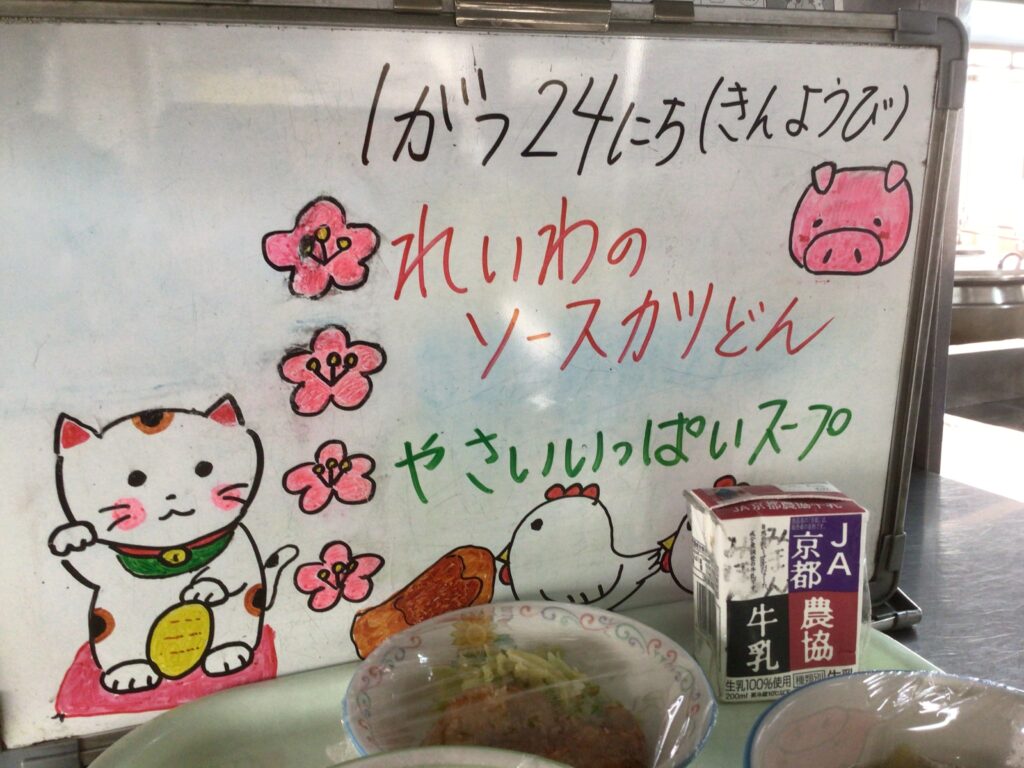 1がつ24にち(きんようび)
れいわの
ソースカツどん
やさいいっぱいスープ
JA京都農協牛乳
JA
京都
農協
牛乳
生乳100%使用
種類別 牛乳
200ml